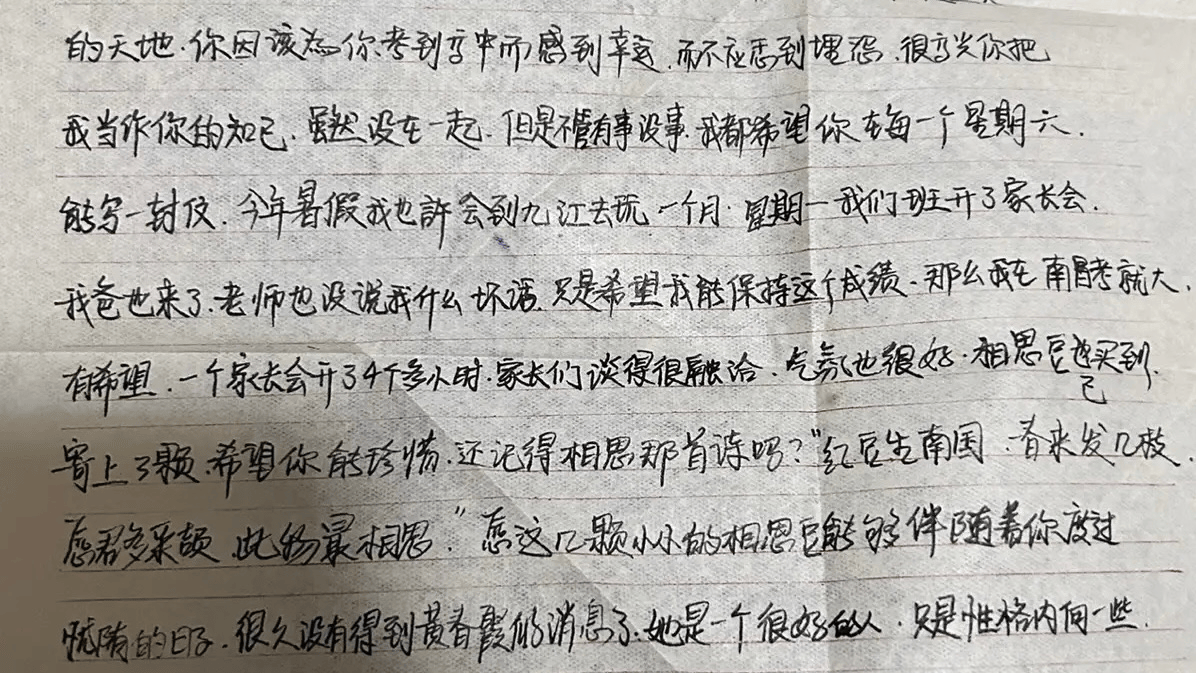 的天地.你因该为你考到高中而感到幸运.而不应感到埋怨.很高兴你把
我当作你的知己.虽然没在一起.但是不管有事没事.我都希望你在每一个星期六.
能写一封仅.今年暑假我也許会到九江去玩一个月.星期一我们班开了家长会.
我爸也来了.老师也没说我什么坏话.只是希望我能保持这个成绩.那么我在南昌考就大.
有希望.一个家长会开了4个多小时.家长们谈得很融洽.气氛也很好.相思豆已买到.
寄上3颗.希望你能珍惜.还记得相思那首诗吗?"红豆生南国.春来发几枝.
愿君多采颉 此物最相思."愿这几颗小小的相思豆能够伴随着你度过
的日子.很久没有得到黄春霞的消息了.她是一个很好的人.只是性格内向一些.